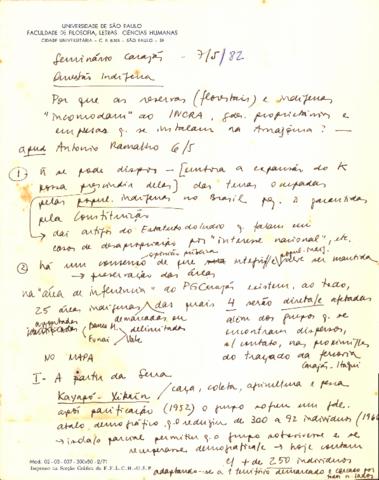 UNIVERSIDADE DE SÃO PAULO
FACULDADE DE FILOSOFIA, LETRAS CIÊNCIAS HUMANAS
CIDADE UNIVERSITÁRIA - C. P. 8.105 - SÃO PAULO - SP
Seminário Carajás - 7/5/82
Questão Indígena
Por que as reservas (florestais) e indígenas
"incomodam" ao INCRA, gdes. proprietários e
empresas q. se instalam na Amazônia? —
apud Antonio Ramalho 6/5
① se pode dispor — [embora a expansão do K
possa prescindir delas] das terras ocupadas
pelas popul. indígenas no Brasil pq. garantidas
pela Constituição
→ daí artifo do Estatuto do índio q. falam em
casos de desapropriação por "interesse nacional", etc.
② há um consenso de que deve ser mantida
opinião pública
→ preservação das áreas
na "área de influência" do PGCarajás existem, ao todo,
25 áreas indígenas das quais 4 serão diretae/ afetadas
demarcadas ou delimitadas
Funai Vale
além dos grupos q. se
encontram dispersos,
no entanto, nas proximi//es
do traçado da ferrovia
Carajás - Itaqui
NO MAPA
I - A partir da Serra
Kayapó - Xikrin / caça, coleta, agricultura e pesca
após pacificação (1952) o grupo sofreu um
demográfico, q. o reduziu de 300 a 92 indivíduos (196
→ isola/o parcial permitiu q. o grupo sobrevivesse e se
recuperasse demografica/e → hoje contam
c/ + de 250 indivíduos
adaptando-se a 1 território demarcado e cercado por
Mod. 02-03-037 - 300x50 - 2/71
Impresso na Secção Gráfica da F.F.L.C.H.-U.S.P.